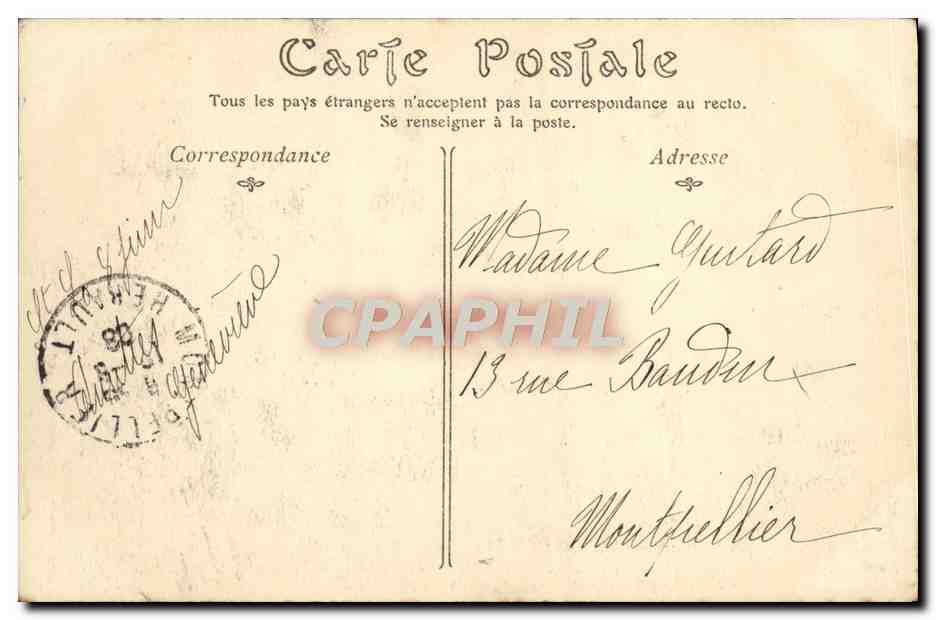 Carte Postale
Tous les pays étrangers n'acceptent pas la correspondance au recto.
Se renseigner à la poste.
Correspondance
Adresse
8 juin
Geneviève
HERAULT
08
Madame Guitard
13 rue Baudin
Montpellier
CPAPHIL